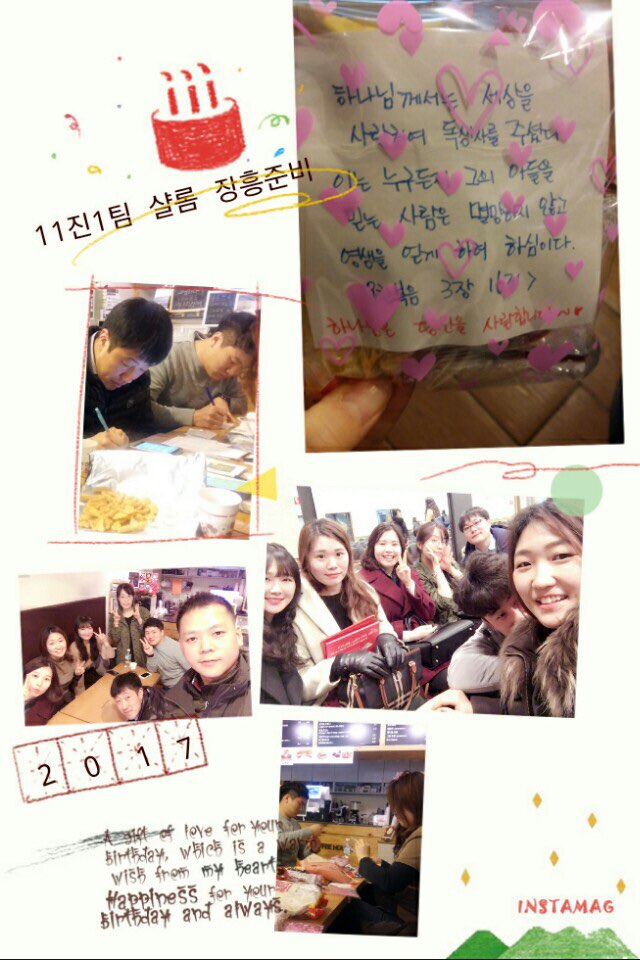 11진1팀 샬롬 장흥준비
하나님께서는 세상을
사랑하여 독생자를 주셨다
이는 누구든지 그의 아들을
믿는 사람은 멸망하지 않고
영생을 얻게 하여 하심이다.
3장
하나님은 당신을 사랑합니다~♥
2017
A gift of love for your
birthday, which is a
wish from my heart
Happiness for your
birthday and always.
INSTAMAG